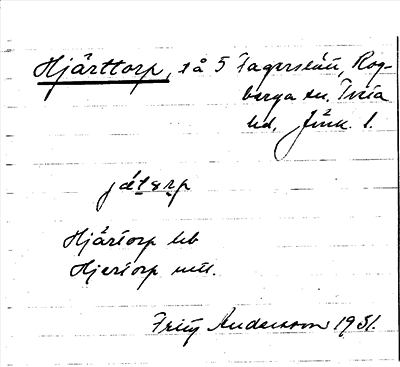 Hjärttorp, så 5 Fagerslätt, Rog-
berga sn. Tveta
hd. Jönk. l.
jätərp
Hjärtorp hb
Hjertorp mtl.
Fritz Andersson 1931.